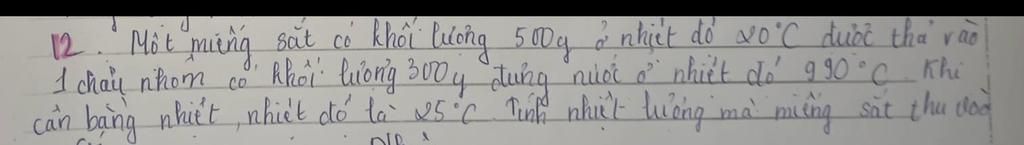 12. Một miếng sắt có khối lượng 500g ở nhiệt độ 20°C được thả vào
1 chậu nhôm có khối lượng 300g đựng nước ở nhiệt độ 990°C. Khi
cân bằng nhiệt, nhiệt độ là 25°C. Tính nhiệt lượng mà miếng sắt thu vào